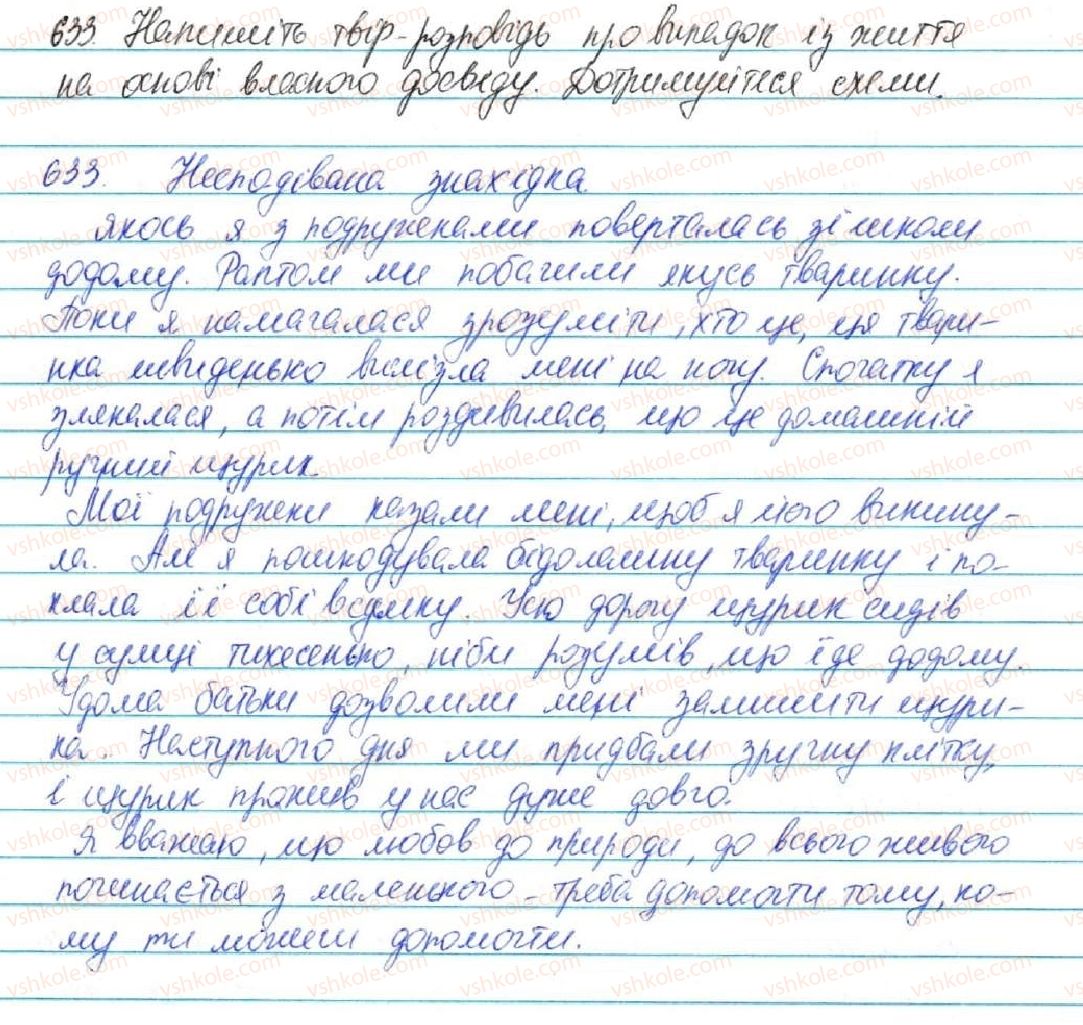 633. Напишіть твір-розповідь про випадок із життя
на основі власного досвіду. Дотримуйтеся схеми.
633. Несподівана знахідка.
Якось я з подружками поверталась зі школи
додому. Раптом ми побачили якусь тваринку.
Поки я намагалася зрозуміти, хто це, ця твари-
нка швиденько вилізла мені на ногу. Спочатку я
злякалася, а потім роздивилась, що це домашній
ручний щурик.
Мої подружки казали мені, щоб я його викину-
ла. Але я пошкодувала бідолашну тваринку і по-
клала її собі в сумку. Усю дорогу щурик сидів
у сумці тихесенько, ніби розумів, що їде додому.
Удома батьки дозволили мені залишити щури-
ка. Наступного дня ми придбали зручну клітку,
і щурик прожив у нас дуже довго.
Я вважаю, що любов до природи, до всього живого
починається з маленького - треба допомогти тому, ко-
му ти можеш допомогти.